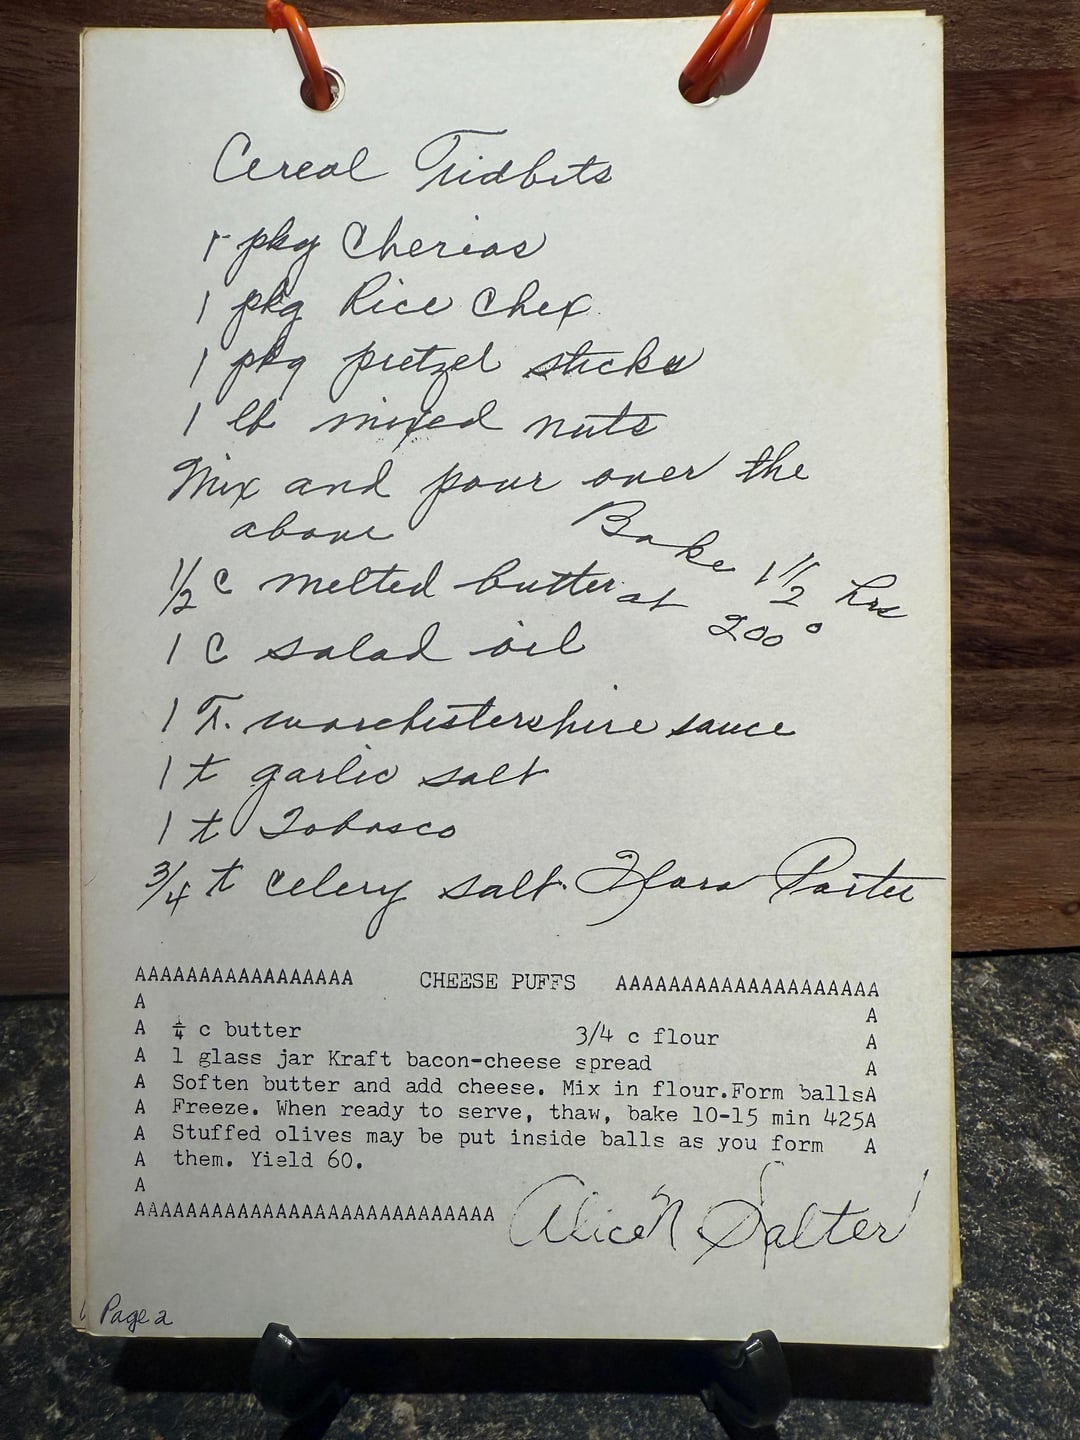 Cereal Tidbits
1 pkg Cherios
1 pkg Rice Chex
1 pkg pretzel sticks
1 lb mixed nuts
Mix and pour over the
above
Bake 1 1/2 hrs
at 200°
1/2 c melted butter
1 C salad oil
1 T. worchestershire sauce
1 t garlic salt
1 t Tobasco
3/4 t celery salt. Flora Porter
AAAAAAAAAAAAAAAAA CHEESE PUFFS AAAAAAAAAAAAAAAAAAAA
A A
A ¼ c butter 3/4 c flour A
A 1 glass jar Kraft bacon-cheese spread A
A Soften butter and add cheese. Mix in flour.Form ballsA
A Freeze. When ready to serve, thaw, bake 10-15 min 425A
A Stuffed olives may be put inside balls as you form A
A them. Yield 60.
A
AAAAAAAAAAAAAAAAAAAAAAAAAAAA
Alice N Salter
Page 2